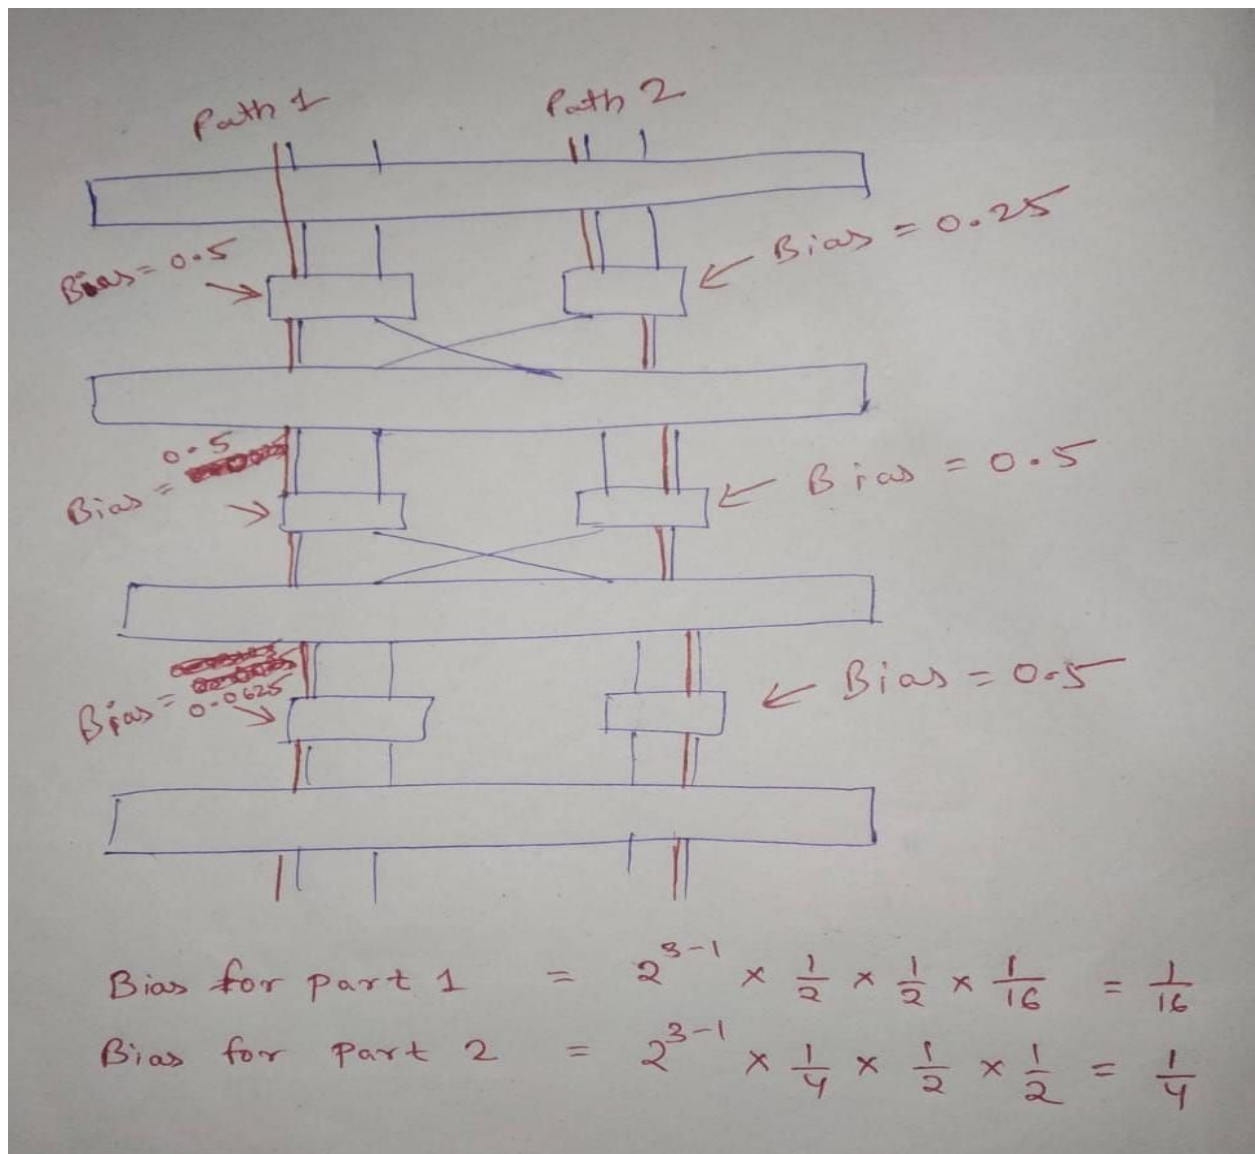 Path 1
Path 2
Bias = 0.5
Bias = 0.25
Bias = 0.5
Bias = 0.5
Bias = 0.0625
Bias = 0.5
Bias for part 1 = 2^{3-1} × 1/2 × 1/2 × 1/16 = 1/16
Bias for part 2 = 2^{3-1} × 1/4 × 1/2 × 1/2 = 1/4